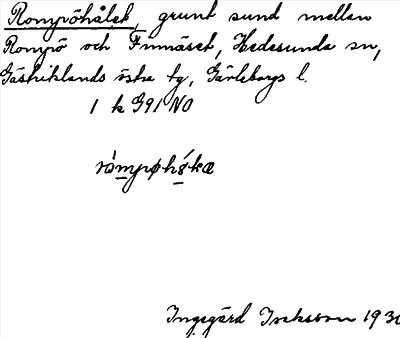 Rompöhålet, grunt sund mellan
Rompö och Finnäset, Hedesunda sn,
Gästriklands östra tg, Gävleborgs l.
1 k G91 NO
Ingegärd Isaksson 1930